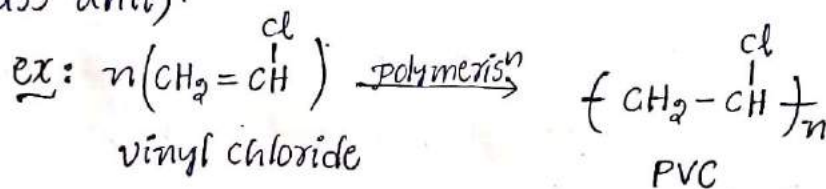 Cl Cl
ex: n(CH₂ = CH) polymerisⁿ → –( CH₂ – CH )–n
vinyl chloride PVC